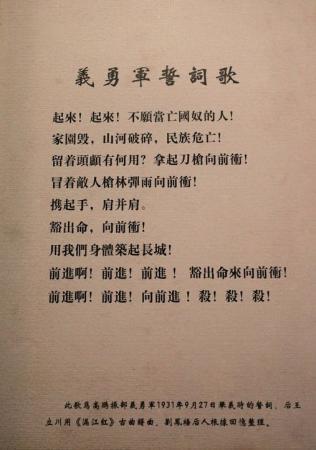 義勇軍誓詞歌
起來！起來！不願當亡國奴的人！
家園毀，山河破碎，民族危亡！
留着頭顱有何用？拿起刀槍向前衝！
冒着敵人槍林彈雨向前衝！
携起手，肩并肩。
豁出命，向前衝！
用我們身體築起長城！
前進啊！前進！前進！豁出命來向前衝！
前進啊！前進！向前進！殺！殺！殺！
此歌爲高鵬振部義勇軍1931年9月27日舉義時的誓詞，后王
立川用《滿江紅》古曲譜曲，劉鳳梧后人根據回憶整理。